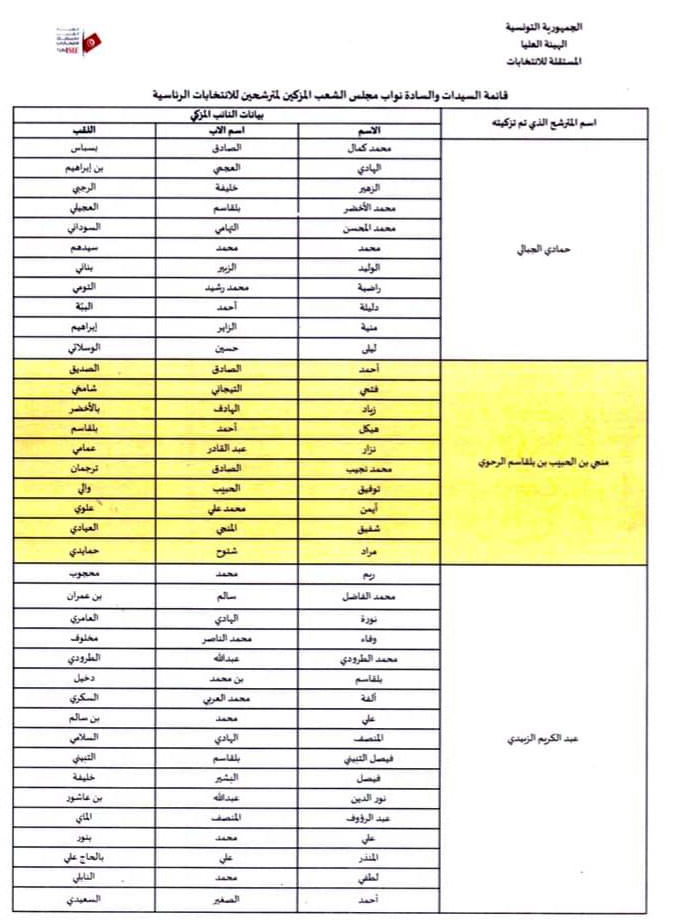 الجمهورية التونسية
الهيئة العليا
المستقلة للانتخابات
قائمة السيدات والسادة نواب مجلس الشعب المزكين لمترشحين للانتخابات الرئاسية
اسم المترشح الذي تم تزكيته
بيانات النائب المزكي
الاسم اسم الاب اللقب
حمادي الجبالي
محمد كمال الصادق بسباس
الهادي العجمي بن إبراهيم
الزهير خليفة الرجبي
محمد الأخضر بلقاسم العجيلي
محمد المحسن التهامي السوداني
محمد محمد سيدهم
الوليد الزبير بناني
راضية محمد رشيد التومي
دليلة أحمد الببّة
منية الزاير إبراهيم
ليلى حسين الوسلاتي
منجي بن الحبيب بن بلقاسم الرحوي
أحمد الصادق الصديق
فتحي التيجاني شامخي
زياد الهادف بالأخضر
هيكل أحمد بلقاسم
نزار عبد القادر عمامي
محمد نجيب الصادق ترجمان
توفيق الحبيب والي
أيمن محمد علي علوي
شفيق المنجي العيادي
مراد شتوح حمايدي
عبد الكريم الزبيدي
ريم محمد محجوب
محمد الفاضل سالم بن عمران
نورة الهادي العامري
وفاء محمد الناصر مخلوف
محمد الطرودي عبدالله الطرودي
بلقاسم بن محمد دخيل
ألفة محمد العربي السكري
علي محمد بن سالم
المنصف الهادي السلامي
فيصل التبيني بلقاسم التبيني
فيصل البشير خليفة
نور الدين عبدالله بن عاشور
عبد الرؤوف المنصف الماي
علي محمد بنور
المنذر علي بالحاج علي
لطفي محمد النابلي
أحمد الصغير السعيدي